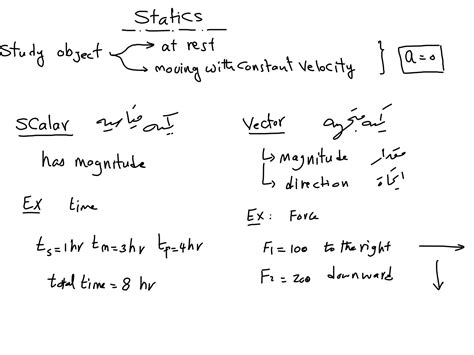 Statics
Study object → at rest
→ moving with constant velocity } a=0
Scalar كمية قياسية
has magnitude
Ex time
ts=1hr tm=3hr tp=4hr
total time = 8 hr
Vector كمية متجهة
↳ magnitude مقدار
↳ direction اتجاه
Ex: Force
F1=100 to the right →
F2=200 downward ↓